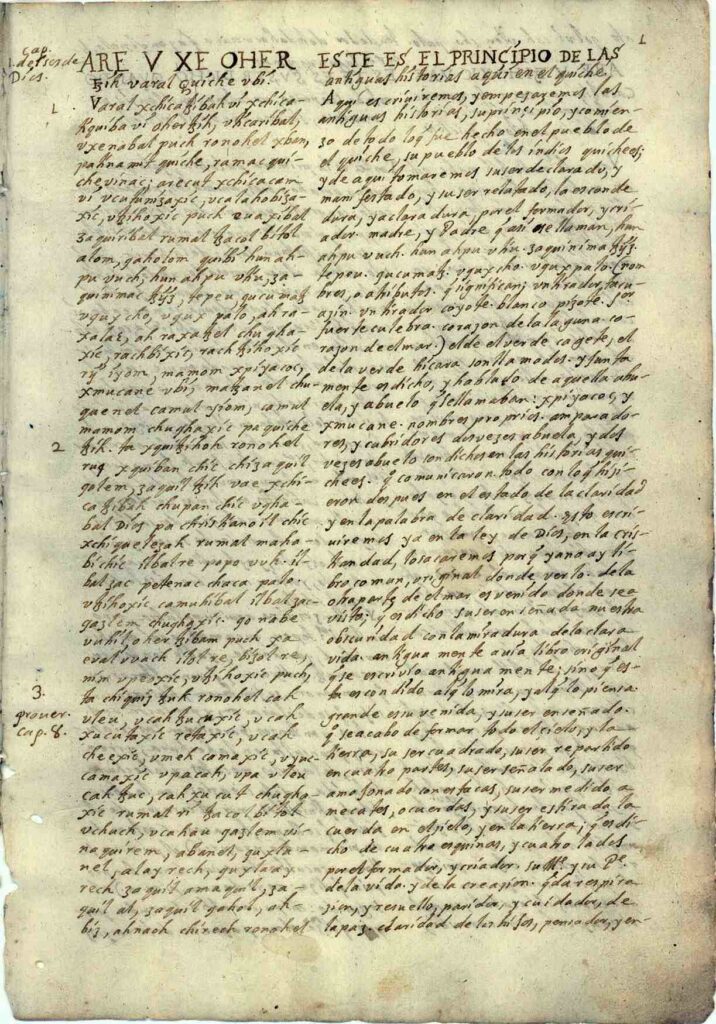 1
Cap.
1. del ser de
Dios.
ARE V XE OHER
ꜩih varal quiche vbi.
1
Varal xchicaꜩibah vi xchica-
tiquiba vi oher ꜩih, vticaribal,
vxenabal puch ronohel xban,
pa tinamit quiche, ramac qui-
che vinac; arecut xchicacam
vi vcutunizaxic, vcalahobiza-
xic, vꜩihoxic puch euaxibal
zaquiribal rumal ꜩacol bitol
alom, qaholom quibi hun ah-
pu vuch, hun ahpu vtiu, za-
quinimac ꜩyz, tepeu, qucumatz
vqux cho, vqux palo, ah ra-
xalac, ah raxatzel chugha-
xic, rachbixic, rachꜩihoxic
rij iyom, mamom xpiyacoc,
xmucane vbi, matzanel chu-
quenel camul iyom, camul
mamom chughaxic pa quiche
2
ꜩih. ta xquiꜩihoh ronohel
ruq xquiban chic chi zaquil
golem, zaquil ꜩih vae xchi-
caꜩibah chupan chic vgha-
bal Dios pa christianoil chic
xchiquelezah rumal maha-
bi chic ilbal re popo vuh. il-
bal zac petenac chaca palo.
vꜩihoxic camuhibal ilbal zac
gazlem chughaxic. go nabe
vuhil, oher ꜩibam puch xa
eval vvach ilol re, bizol re,
nim vpeoxic, vꜩihoxic puch,
3.
prouer.
Cap. 8.
ta chiquiz ꜩuk ronohel cah
vleu, vcah ꜩucuxic, vcah
xucutaxic retaxic, vcah
cheexic, vmeh camaxic, vyuc
camaxic vpa cah, vpa vleu
cah ꜩuc, cah xucut chugha-
xic rumal ri ꜩacol bitol
vchuch, vcahau gazlem vi-
naquirem, abanel, quxla-
nel, alay rech, quxlaay
rech zaquil amaquil, za-
quil al, zaquil gahol, ah-
biz, ahnaoh chirech ronohel
ESTE ES EL PRINCIPIO DE LAS
antiguas historias aqui en el quiche,
Aqui escriuiremos, y empezaremos las
antiguas historias, su principio, y comien-
zo de todo lo q fue hecho en el pueblo de
el quiche, su pueblo de los indios quichees;
y de aqui tomaremos su ser declarado, y
manifestado, y su ser relatado, la esconde
dura, y aclaradura, por el formador, y cri-
ador. madre, y Padre q asi se llaman, hun
ahpu vuch. hun ahpu vtiu. zaquinima ꜩyz.
tepeu. qucumatz. vqux cho. vqux palo. (nom
bres, o atributos. q significan; vn tirador tacu-
azin. vn tirador coyote. blanco pizote. for
fuerte culebra. corazon de la laguna. co-
razon de el mar.) el de el verde cagete, el
de la verde hicara son llamados. y junta
mente es dicho, y hablado de aquella abu-
ela, y abuelo q se llamaban: xpiyacoc, y
xmucane. nombres proprios. amparado-
res, y cubridores dos vezes abuela, y dos
vezes abuelo son dichos en las historias qui-
chees. q comunicaron todo con lo q hizi-
eron despues en el estado de la claridad
y en la palabra de claridad. Esto escri-
uiremos ya en la ley de Dios, en la cris-
tiandad, lo sacaremos por q ya no ay li-
bro comun, original donde verlo. de la
otra parte de el mar es venido donde se e
visto; y es dicho su ser enseñada nuestra
obscuridad con la miradura de la clara
vida. antiguamente auia libro original
q se escriuio antiguamente; sino q es-
ta escondido al q lo mira, y al q lo piensa.
grande es su venida, y su ser enseñado.
q se acabo de formar todo el cielo, y la
tierra, su ser cuadrado, su ser repartido
en cuatro partes, su ser señalado, su ser
amojonado con estacas, su ser medido a
mecates, o cuerdas, y su ser estirada la
cuerda en el zielo, y en la tierra; q es di-
cho de cuatro esquinas, y cuatro lados
por el formador, y criador. su Me. y su Pe.
de la vida. y de la creazion. q da respira-
zion, y resuello, parida, y cuidador, de
la paz. claridad de los hijos, pensador, y en-